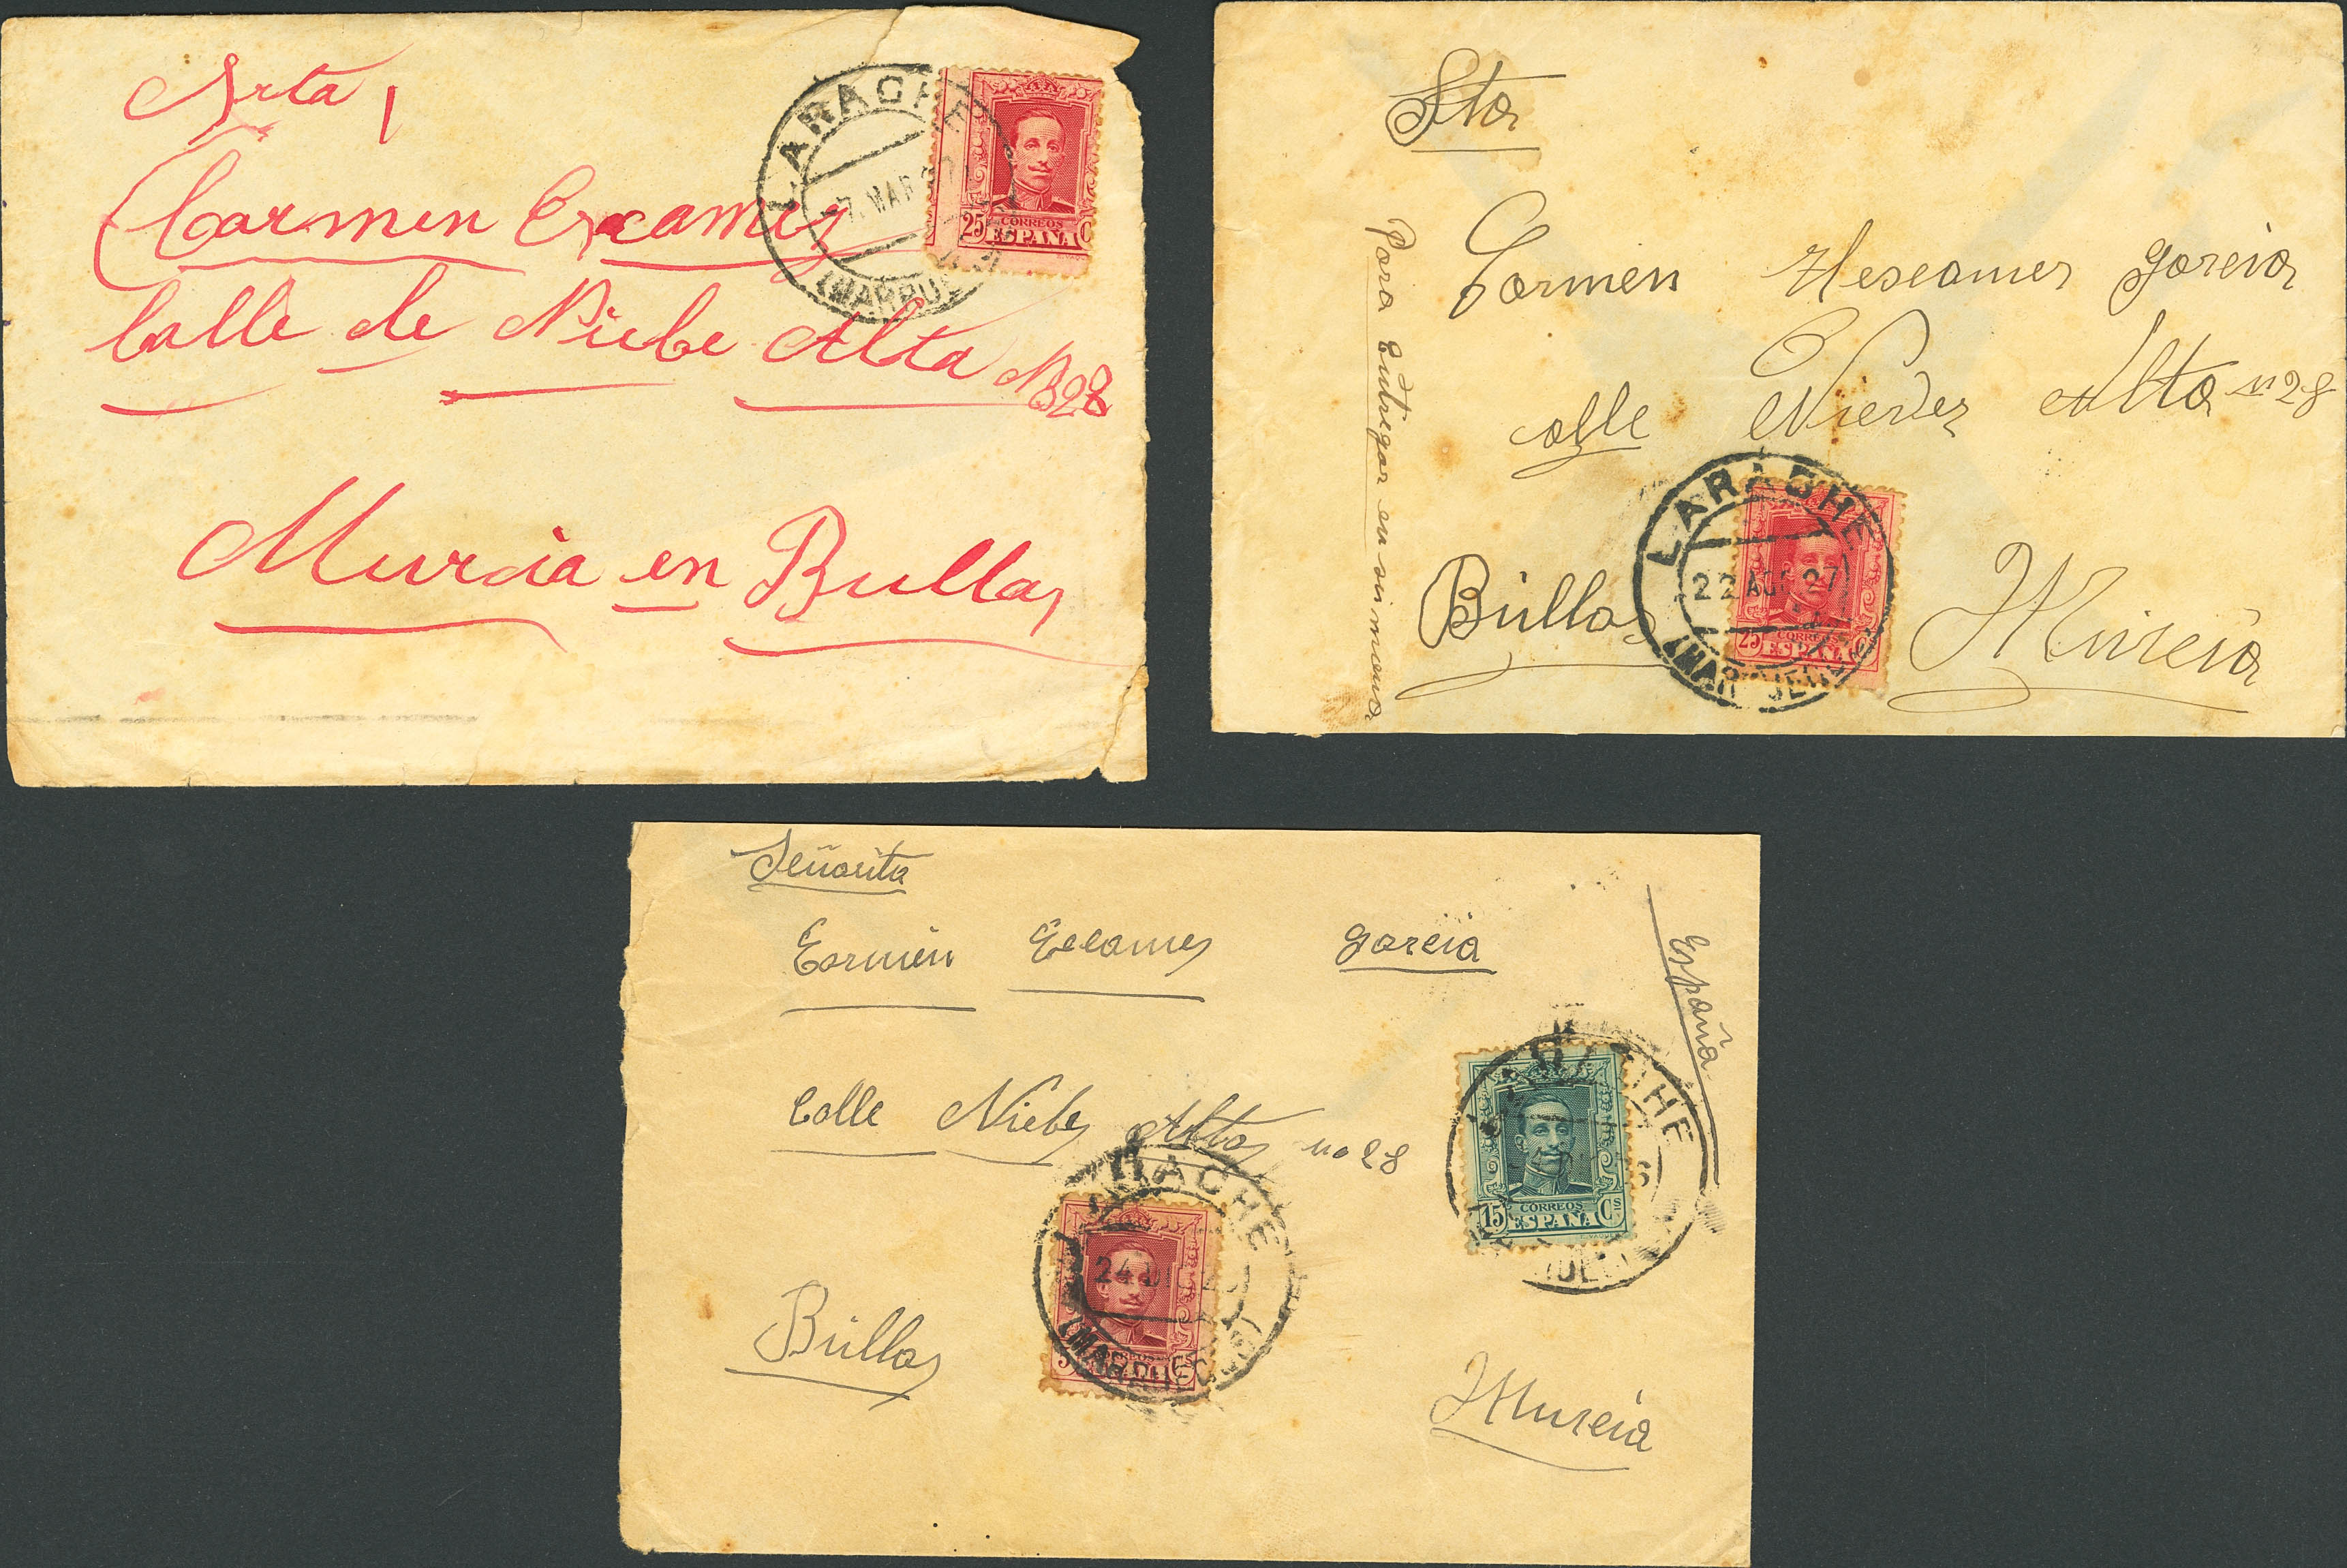 Srta
Carmen Escamez
Calle de Niebe Alta N 28
Murcia en Bullas
LARACHE
7. MAR
(MARRUE
25 CORREOS C
ESPAÑA
Sta
Carmen Hescames Garcia
Calle Nieves Alta nº 28
Bullas Murcia
Para Entregar en su mano
LARACHE
22 AGO 27
(MARRUECOS)
25 CORREOS Cs
ESPAÑA
Señorita
Carmen Escames Garcia
España
Calle Niebes Altas no 28
Bullas
Murcia
LARACHE
24
(MARRUECOS)
CORREOS
LARACHE
15 CORREOS Cs
ESPAÑA